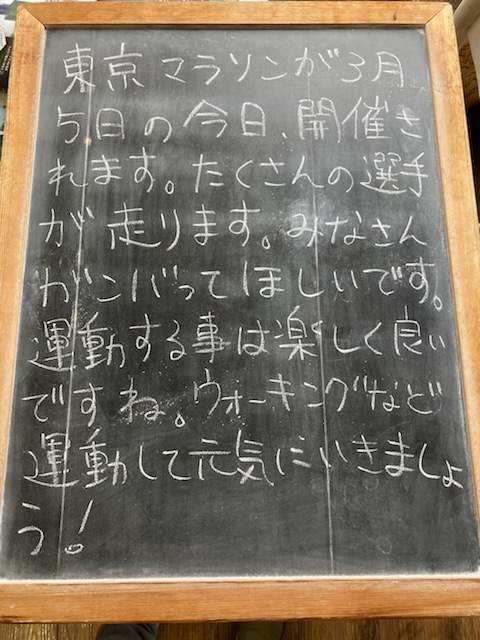 東京マラソンが3月
5日の今日、開催さ
れます。たくさんの選手
が走ります。みなさん
ガンバってほしいです。
運動する事は楽しく良い
ですね。ウォーキングなど
運動して元気にいきましょ
う!